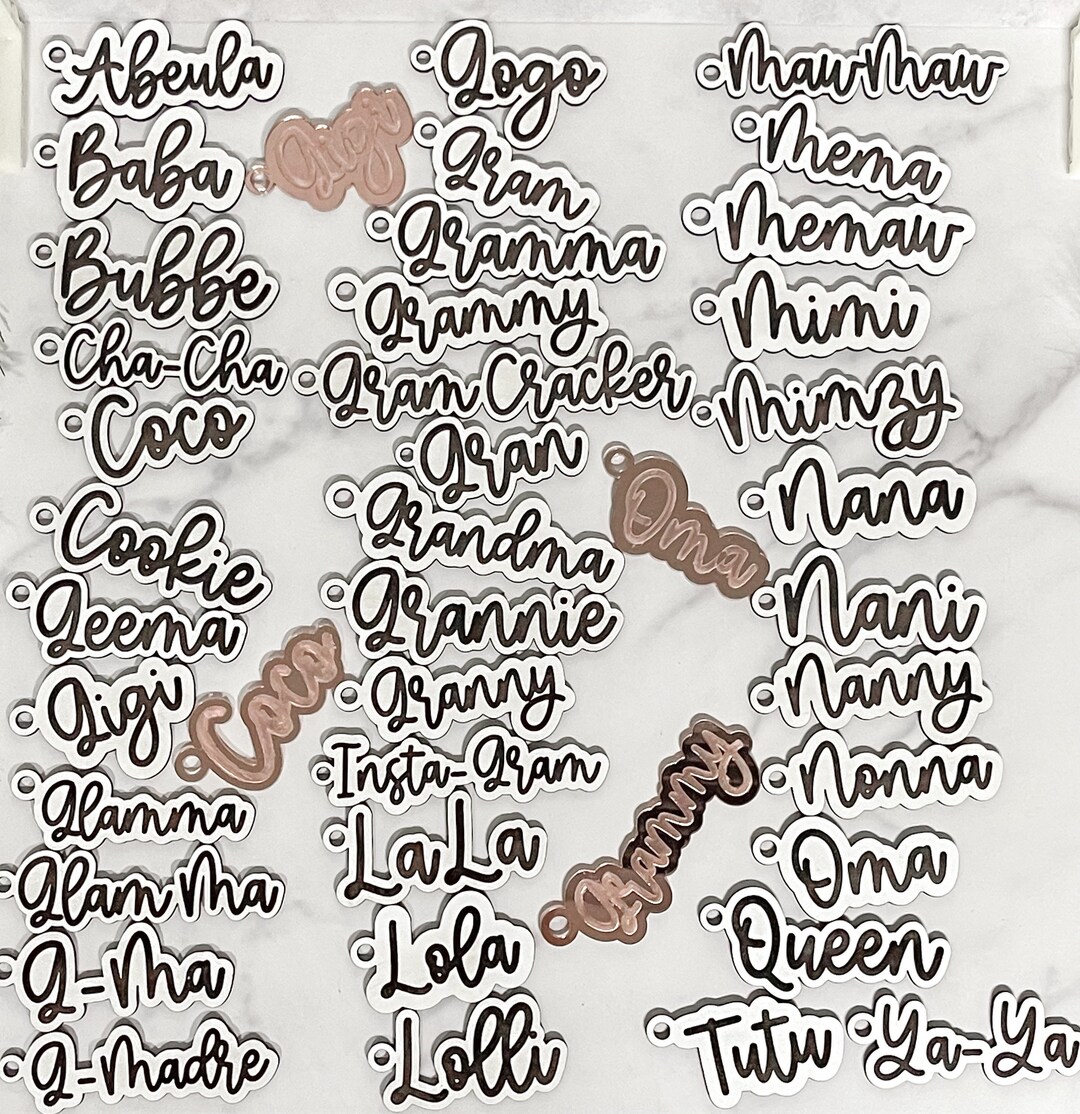 Abeula
Baba
Bubbe
Cha-Cha
Coco
Cookie
Geema
Gigi
Glamma
Glam Ma
G-Ma
G-Madre
Gigi
Coco
Gogo
Gram
Gramma
Grammy
Gram Cracker
Gran
Grandma
Grannie
Granny
Insta-Gram
LaLa
Lola
Lolli
Oma
Grammy
MawMaw
Mema
Memaw
Mimi
Mimzy
Nana
Nani
Nanny
Nonna
Oma
Queen
Tutu
Ya-Ya